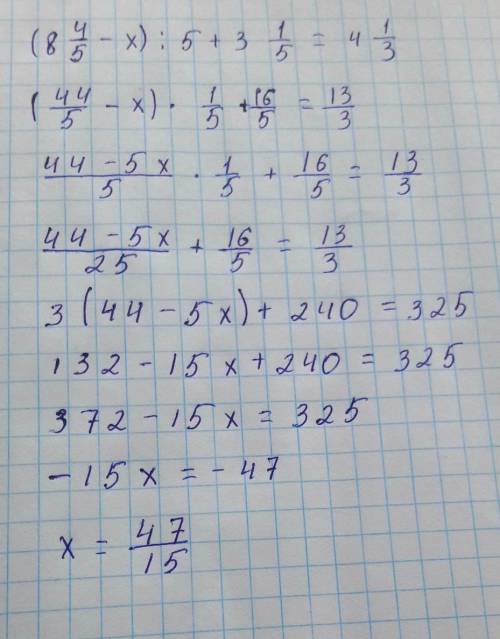 (8 4/5 - x) : 5 + 3 1/5 = 4 1/3
(44/5 - x) · 1/5 + 16/5 = 13/3
44 - 5x/5 · 1/5 + 16/5 = 13/3
44 - 5x/25 + 16/5 = 13/3
3(44 - 5x) + 240 = 325
132 - 15x + 240 = 325
372 - 15x = 325
-15x = -47
x = 47/15